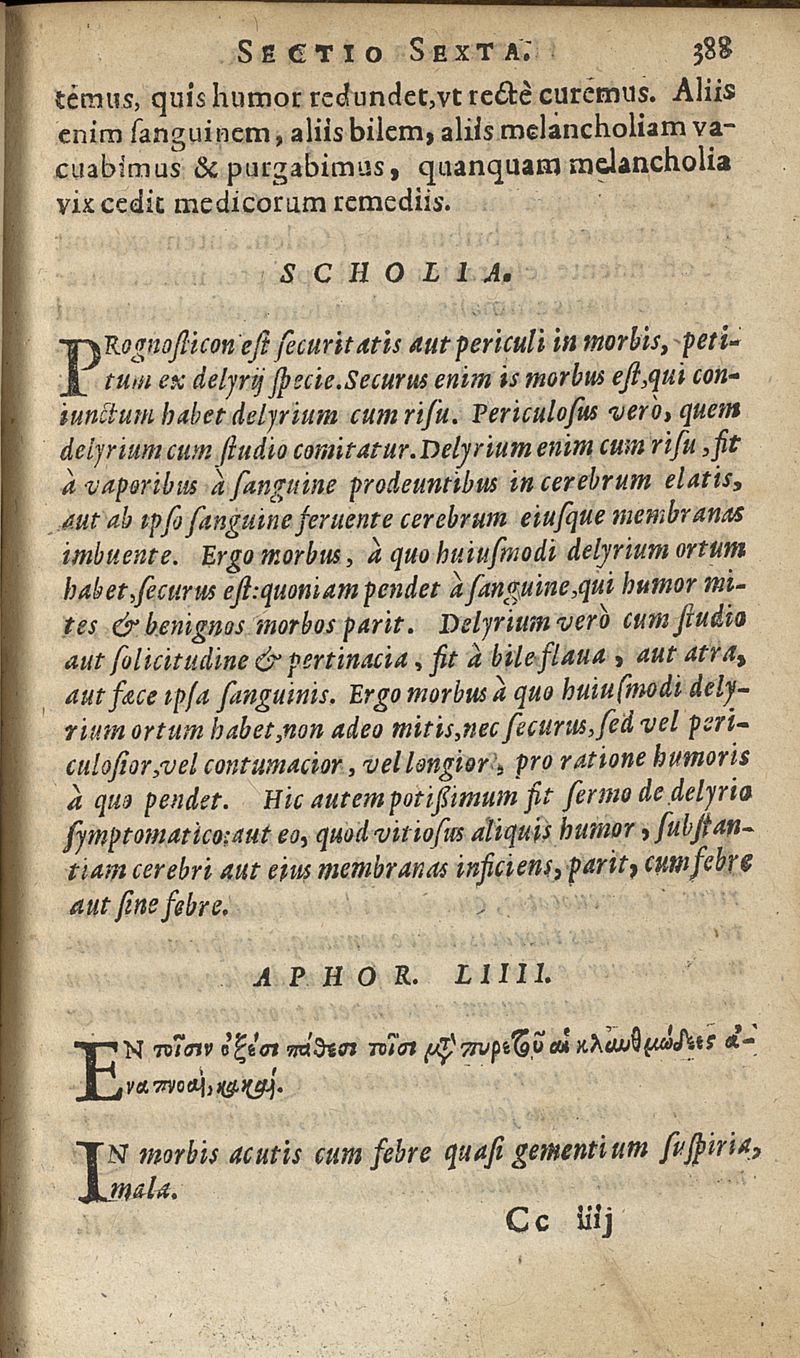 SECTIO SEXTA. 388
témus, quis humor redundet, vt rectè curemus. Aliis
enim sanguinem, aliis bilem, aliis melancholiam va-
cuabimus & purgabimus, quanquam melancholia
vix cedit medicorum remediis.
SCHOLIA.
PRognosticon est securitatis aut periculi in morbis, peti-
tum ex delyrij specie. Securus enim is morbus est, qui con-
iunctum habet delyrium cum risu. Periculosus verò, quem
delyrium cum studio comitatur. Delyrium enim cum risu, fit
à vaporibus à sanguine prodeuntibus in cerebrum elatis,
aut ab ipso sanguine feruente cerebrum eiusque membranas
imbuente. Ergo morbus, à quo huiusmodi delyrium ortum
habet, securus est: quoniam pendet à sanguine, qui humor mi-
tes & benignos morbos parit. Delyrium verò cum studio
aut solicitudine & pertinacia, fit à bile flaua, aut atra,
aut fæce ipsa sanguinis. Ergo morbus à quo huiusmodi dely-
rium ortum habet, non adeo mitis, nec securus, sed vel peri-
culosior, vel contumacior, vel longior, pro ratione humoris
à quo pendet. Hic autem potißimum fit sermo de delyrio
symptomatico: aut eo, quod vitiosus aliquis humor, substan-
tiam cerebri aut eius membranas inficiens, parit, cum febre
aut sine febre.
APHOR. LIIII.
ΕΝ τοῖσιν ὀξέσι πάθεσι τοῖσι μετὰ πυρετοῦ αἱ κλαυθμώδεες ἀ-
ναπνοαὶ, κακαί.
IN morbis acutis cum febre quasi gementium suspiria,
mala.
Cc iiij